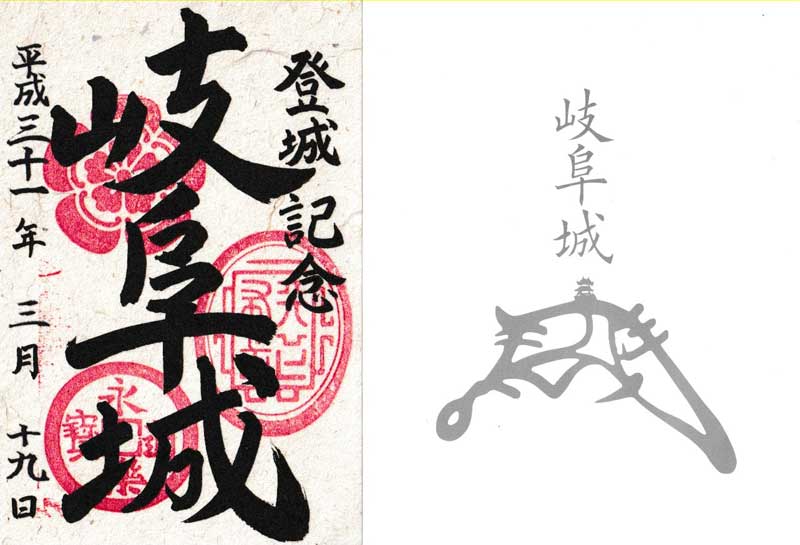 登城記念
岐阜城
平成三十一年 三月 十九日
永樂
寳
岐阜城